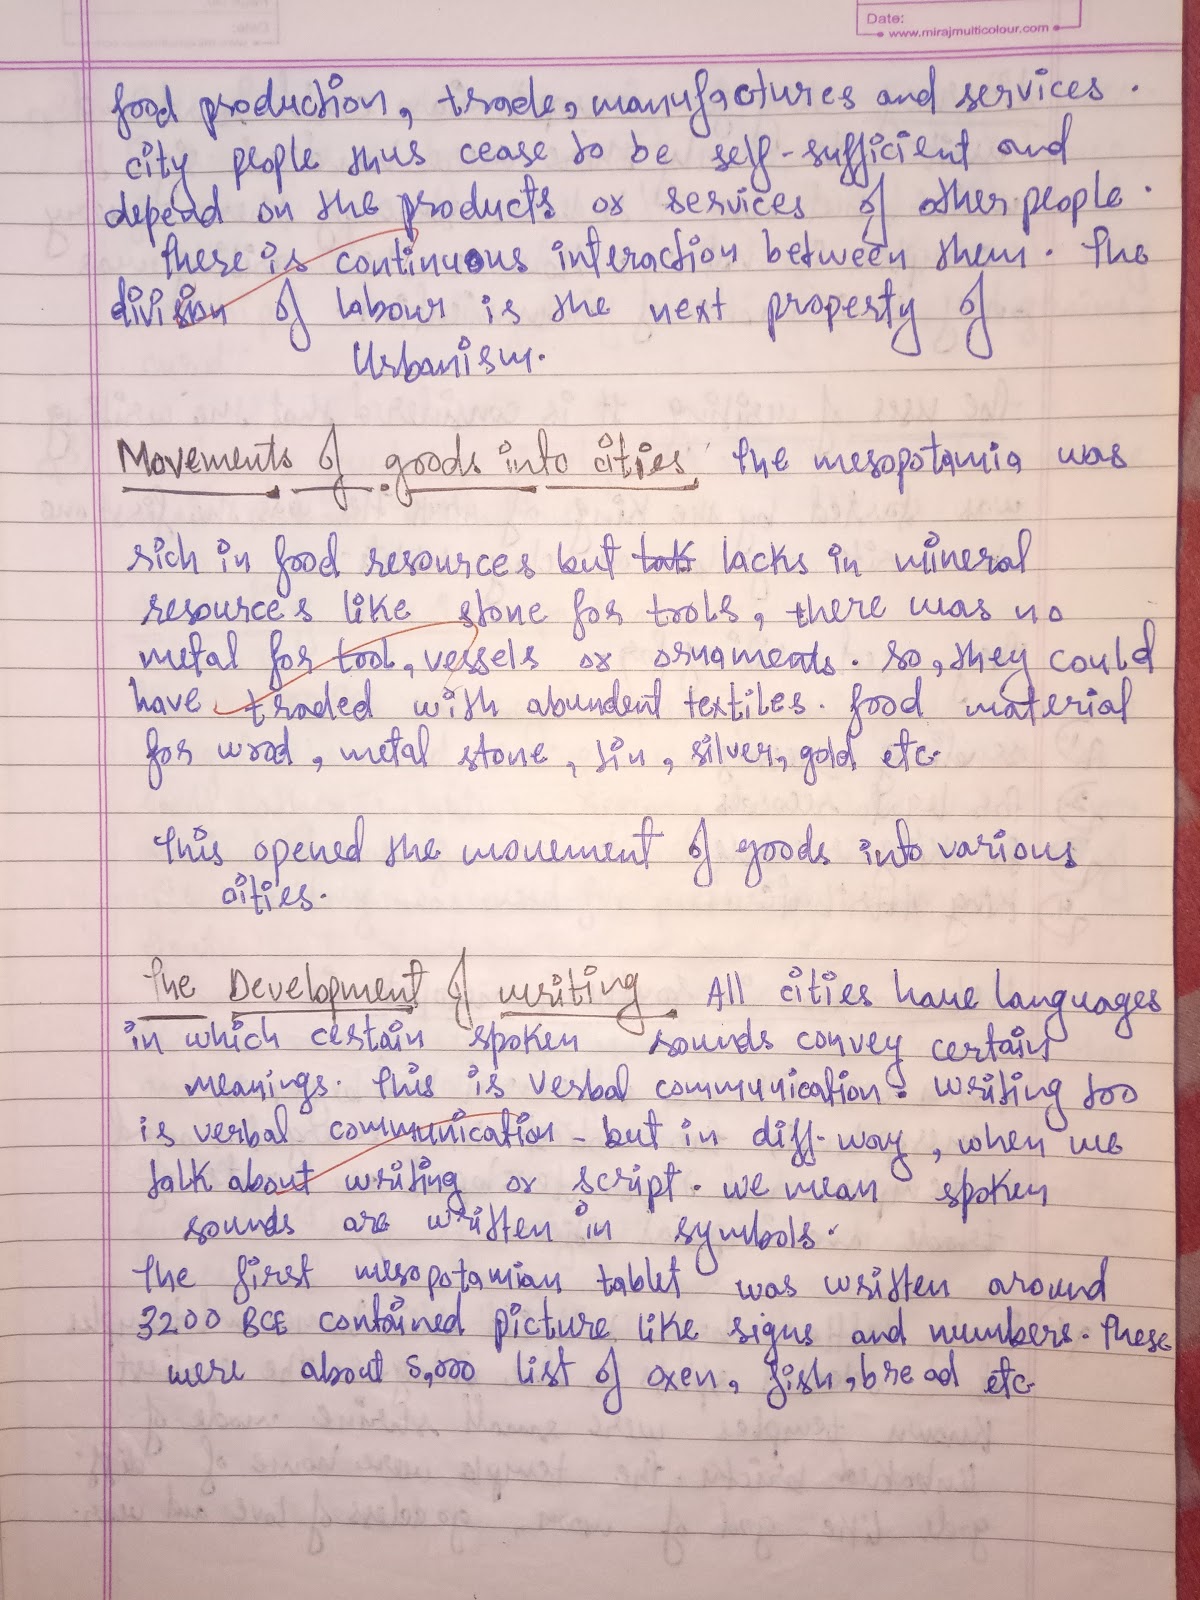 Date:
www.mirajmulticolour.com
food production, trade, manufactures and services.
city people thus cease to be self-sufficient and
depend on the products or services of other people.
There is continuous interaction between them. The
division of labour is the next property of
Urbanism.
Movements of goods into cities. The mesopotamia was
rich in food resources but lacks in mineral
resources like stone for tools, there was no
metal for tool, vessels or ornaments. so, they could
have traded with abundent textiles. food material
for wood, metal stone, tin, silver, gold etc.
This opened the movement of goods into various
cities.
The Development of writing. All cities have languages
in which certain spoken sounds convey certain
meanings. This is verbal communication. writing too
is verbal communication - but in diff. way, when we
talk about writing or script. we mean spoken
sounds are written in symbols.
The first mesopotamian tablet was written around
3200 BCE contained picture like signs and numbers. These
were about 5,000 list of oxen, fish, bread etc.